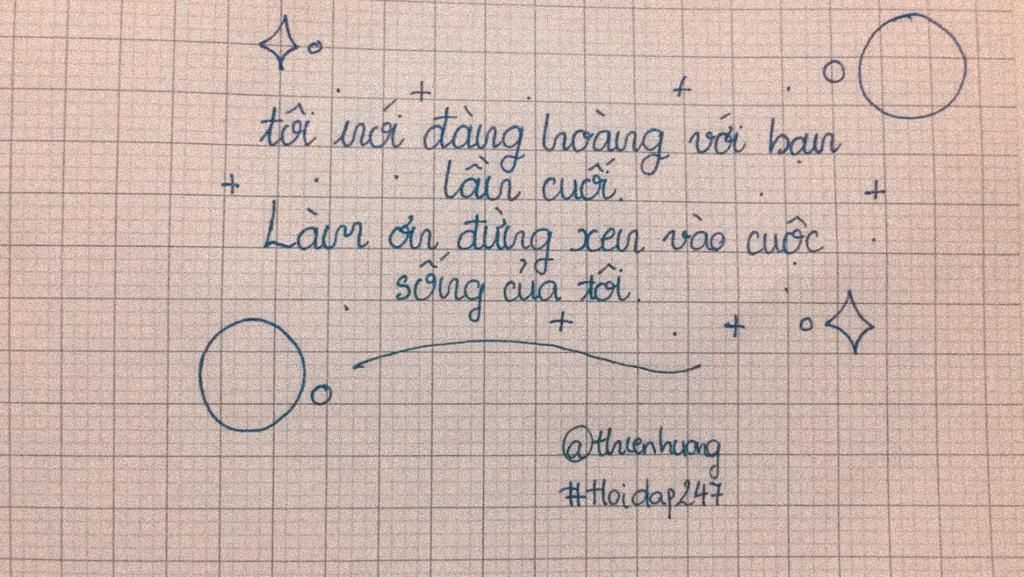 tôi nói đàng hoàng với bạn
lần cuối.
Làm ơn đừng xen vào cuộc
sống của tôi.
@thienhuong
#Hoidap247